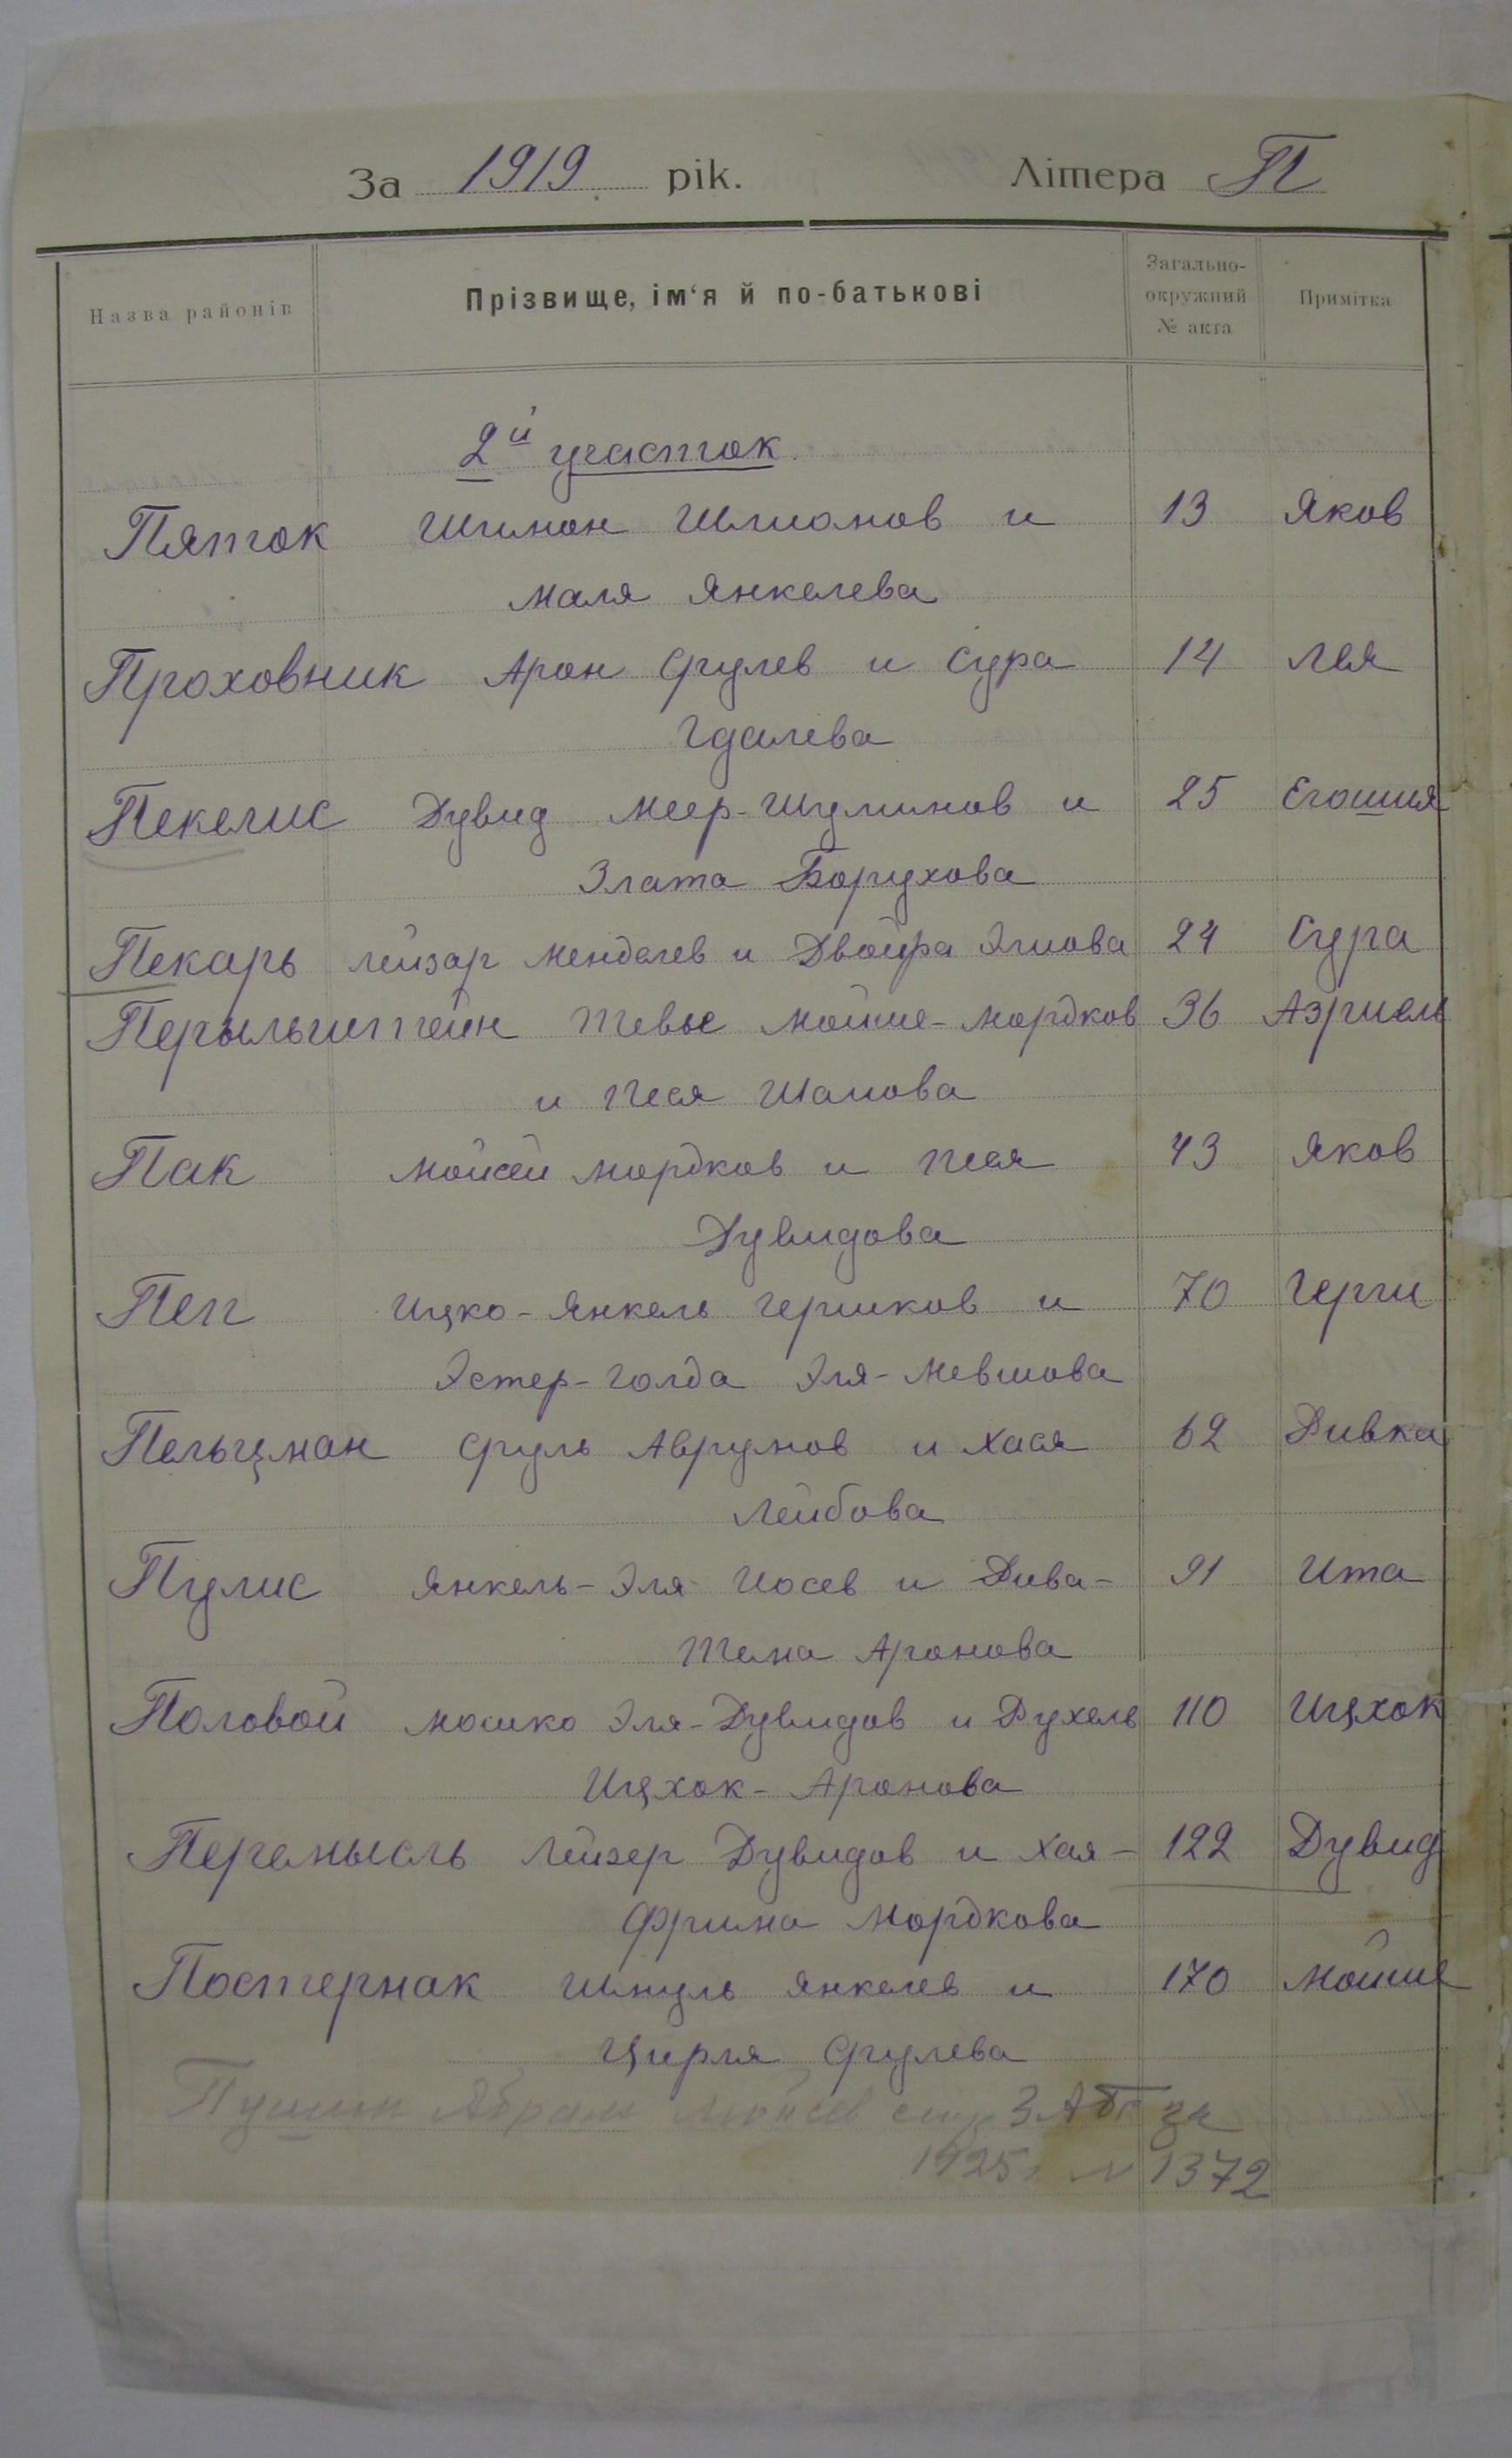 За 1919 рік. Літера П
Назва районів Прізвище, ім'я й по-батькові Загально-окружний № акта Примітка
2й участок.
Пяток Шимон Шлиомов и 13 Яков
Маля Янкелева
Проховник Арон Срулев и Сура 14 Лея
Гдалева
Пекелис Дувид Меер-Шулимов и 25 Егошия
Злата Борухова
Пекарь Лейзар Менделев и Двойра Эліова 24 Сура
Перыльштейн Тевье Мойше-Мордков 36 Азриель
и Песя Шаиова
Пак Мойсей Мордков и Песя 43 Яков
Дувидова
Пеп Ицко-Янкель Гершков и 70 Герш
Эстер-Голда Эля-Мевшова
Пельцман Сруль Аврумов и Хася 62 Ривка
Лейбова
Пулис Янкель-Эля Иосев и Рива- 91 Ита
Тема Аронова
Половой Мошко Эля-Дувидов и Рухель 110 Ицхок
Ицхок-Аронова
Перемысль Лейзер Дувидов и Хая- 122 Дувид
Фрима Мордкова
Постернак Шмуль Янкелев и 170 Мойше
Цирля Срулева
Абрам Мойсев ЗАГС за
1925 г N 1372